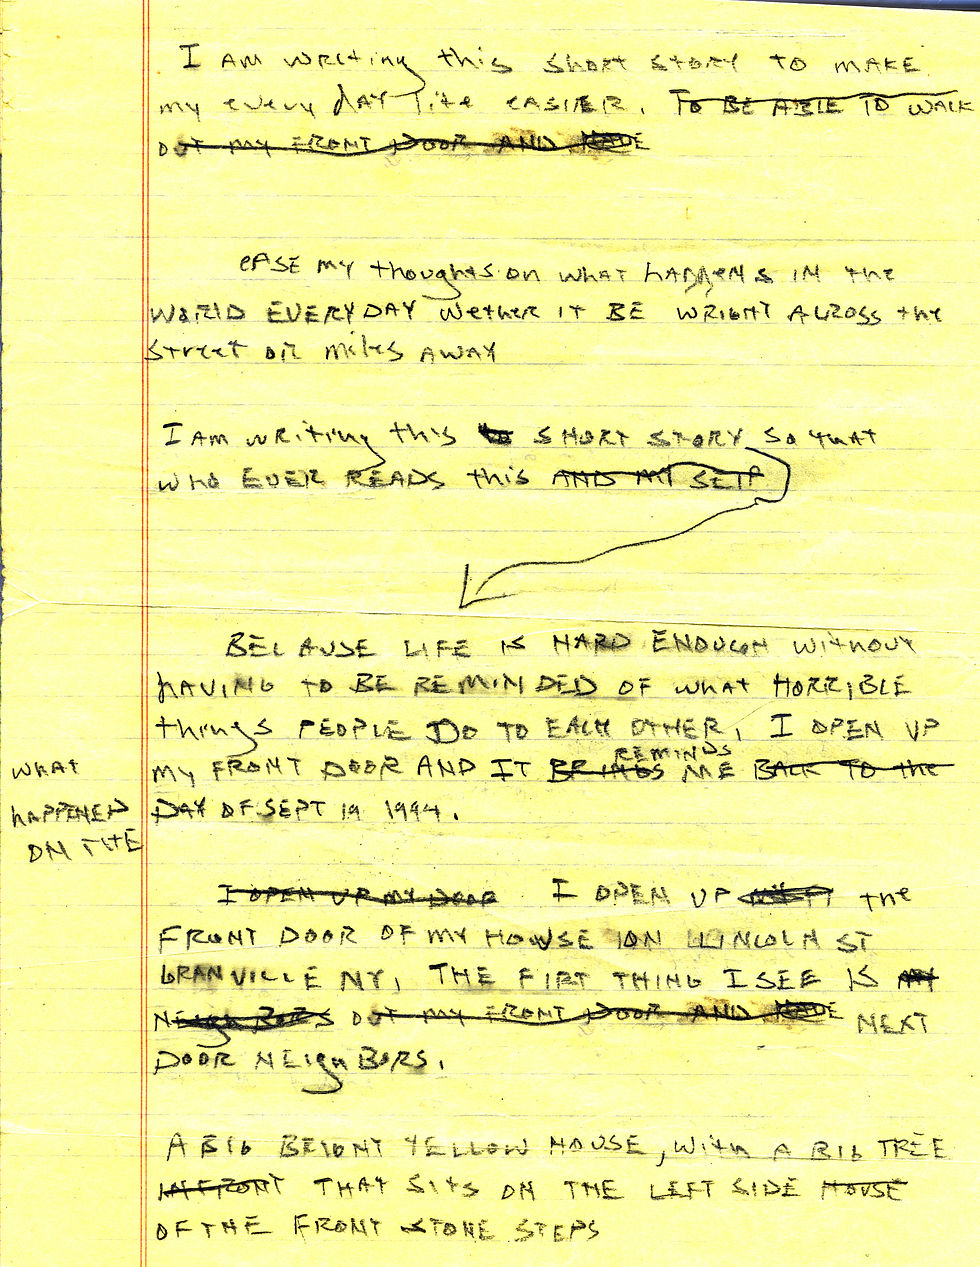 I AM writing this SHORT STORY TO MAKE
my every DAY life EASIER. TO BE ABLE TO WALK
OUT MY FRONT DOOR AND
EASE MY thoughts ON WHAT HAPPENS IN the
WORLD EVERYDAY Wether IT BE WRIGHT ACROSS the
Street OR miles AWAY
I AM writing this to SHORT STORY SO that
WHO EVER READS this AND MY SELF
BECAUSE LIFE IS HARD ENOUGH WITHOUT
HAVING TO BE REMINDED OF WHAT HORRIBLE
things PEOPLE DO TO EACH OTHER, I OPEN UP
REMINDS
MY FRONT DOOR AND IT BRINGS ME BACK TO the
WHAT
HAPPENED
ON THE
DAY OF SEPT 19 1994.
I OPEN UP MY DOOR I OPEN UP the
FRONT DOOR OF MY HOUSE ON LINCOLN ST
GRANVILLE NY, THE FIRT THING I SEE IS MY
NEIGHBORS OUT MY FRONT DOOR AND NEXT
DOOR NEIGHBORS.
A BIG BRIGHT YELLOW HOUSE, With A BIG TREE
IN FRONT THAT SITS ON THE LEFT SIDE HOUSE
OF THE FRONT STONE STEPS